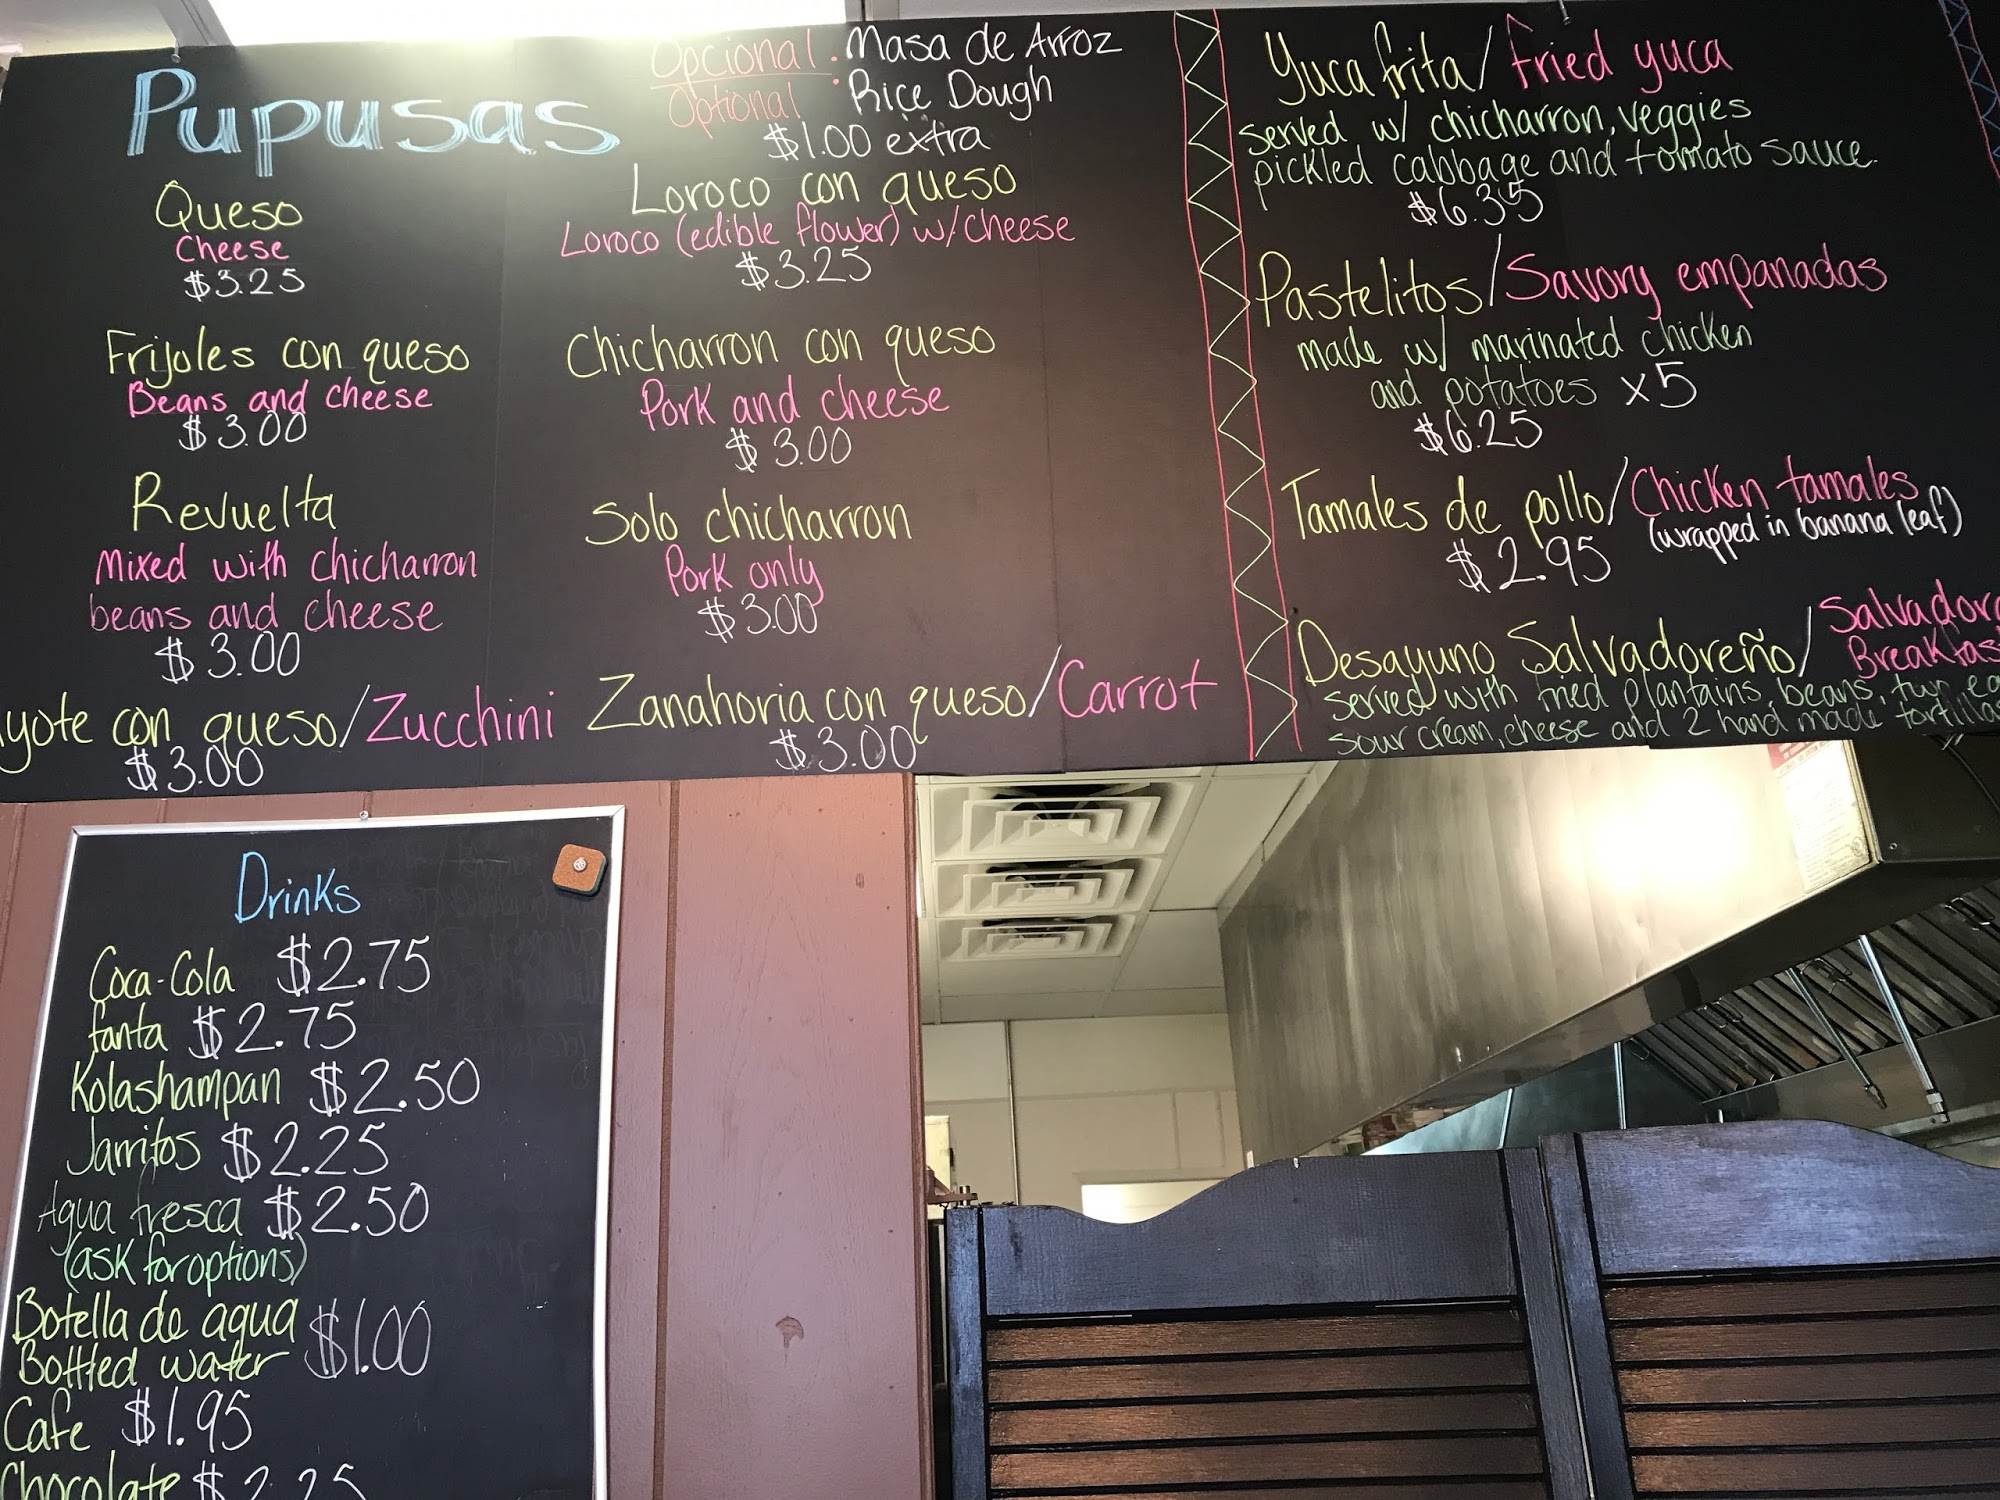 Pupusas
Opcional: Masa de Arroz
Optional: Rice Dough
$1.00 extra
Queso
Cheese
$3.25
Frijoles con queso
Beans and cheese
$3.00
Revuelta
Mixed with chicharron
beans and cheese
$3.00
yote con queso/Zucchini
$3.00
Loroco con queso
Loroco (edible flower) w/cheese
$3.25
Chicharron con queso
Pork and cheese
$3.00
Solo chicharron
Pork only
$3.00
Zanahoria con queso/Carrot
$3.00
Yuca frita/Fried yuca
served w/ chicharron, veggies
pickled cabbage and tomato sauce.
$6.35
Pastelitos/Savory empanadas
made w/ marinated chicken
and potatoes x5
$6.25
Tamales de pollo/Chicken tamales
(wrapped in banana leaf)
$2.95
Desayuno Salvadoreño/Salvadora
Breakfas
served with fried plantains, beans, two
sour cream, cheese and 2 hand made tortillas
Drinks
Coca-Cola $2.75
fanta $2.75
Kolashampan $2.50
Jarritos $2.25
Agua fresca $2.50
(ask for options)
Botella de agua
Bottled water $1.00
Cafe $1.95
Chocolate $2.25